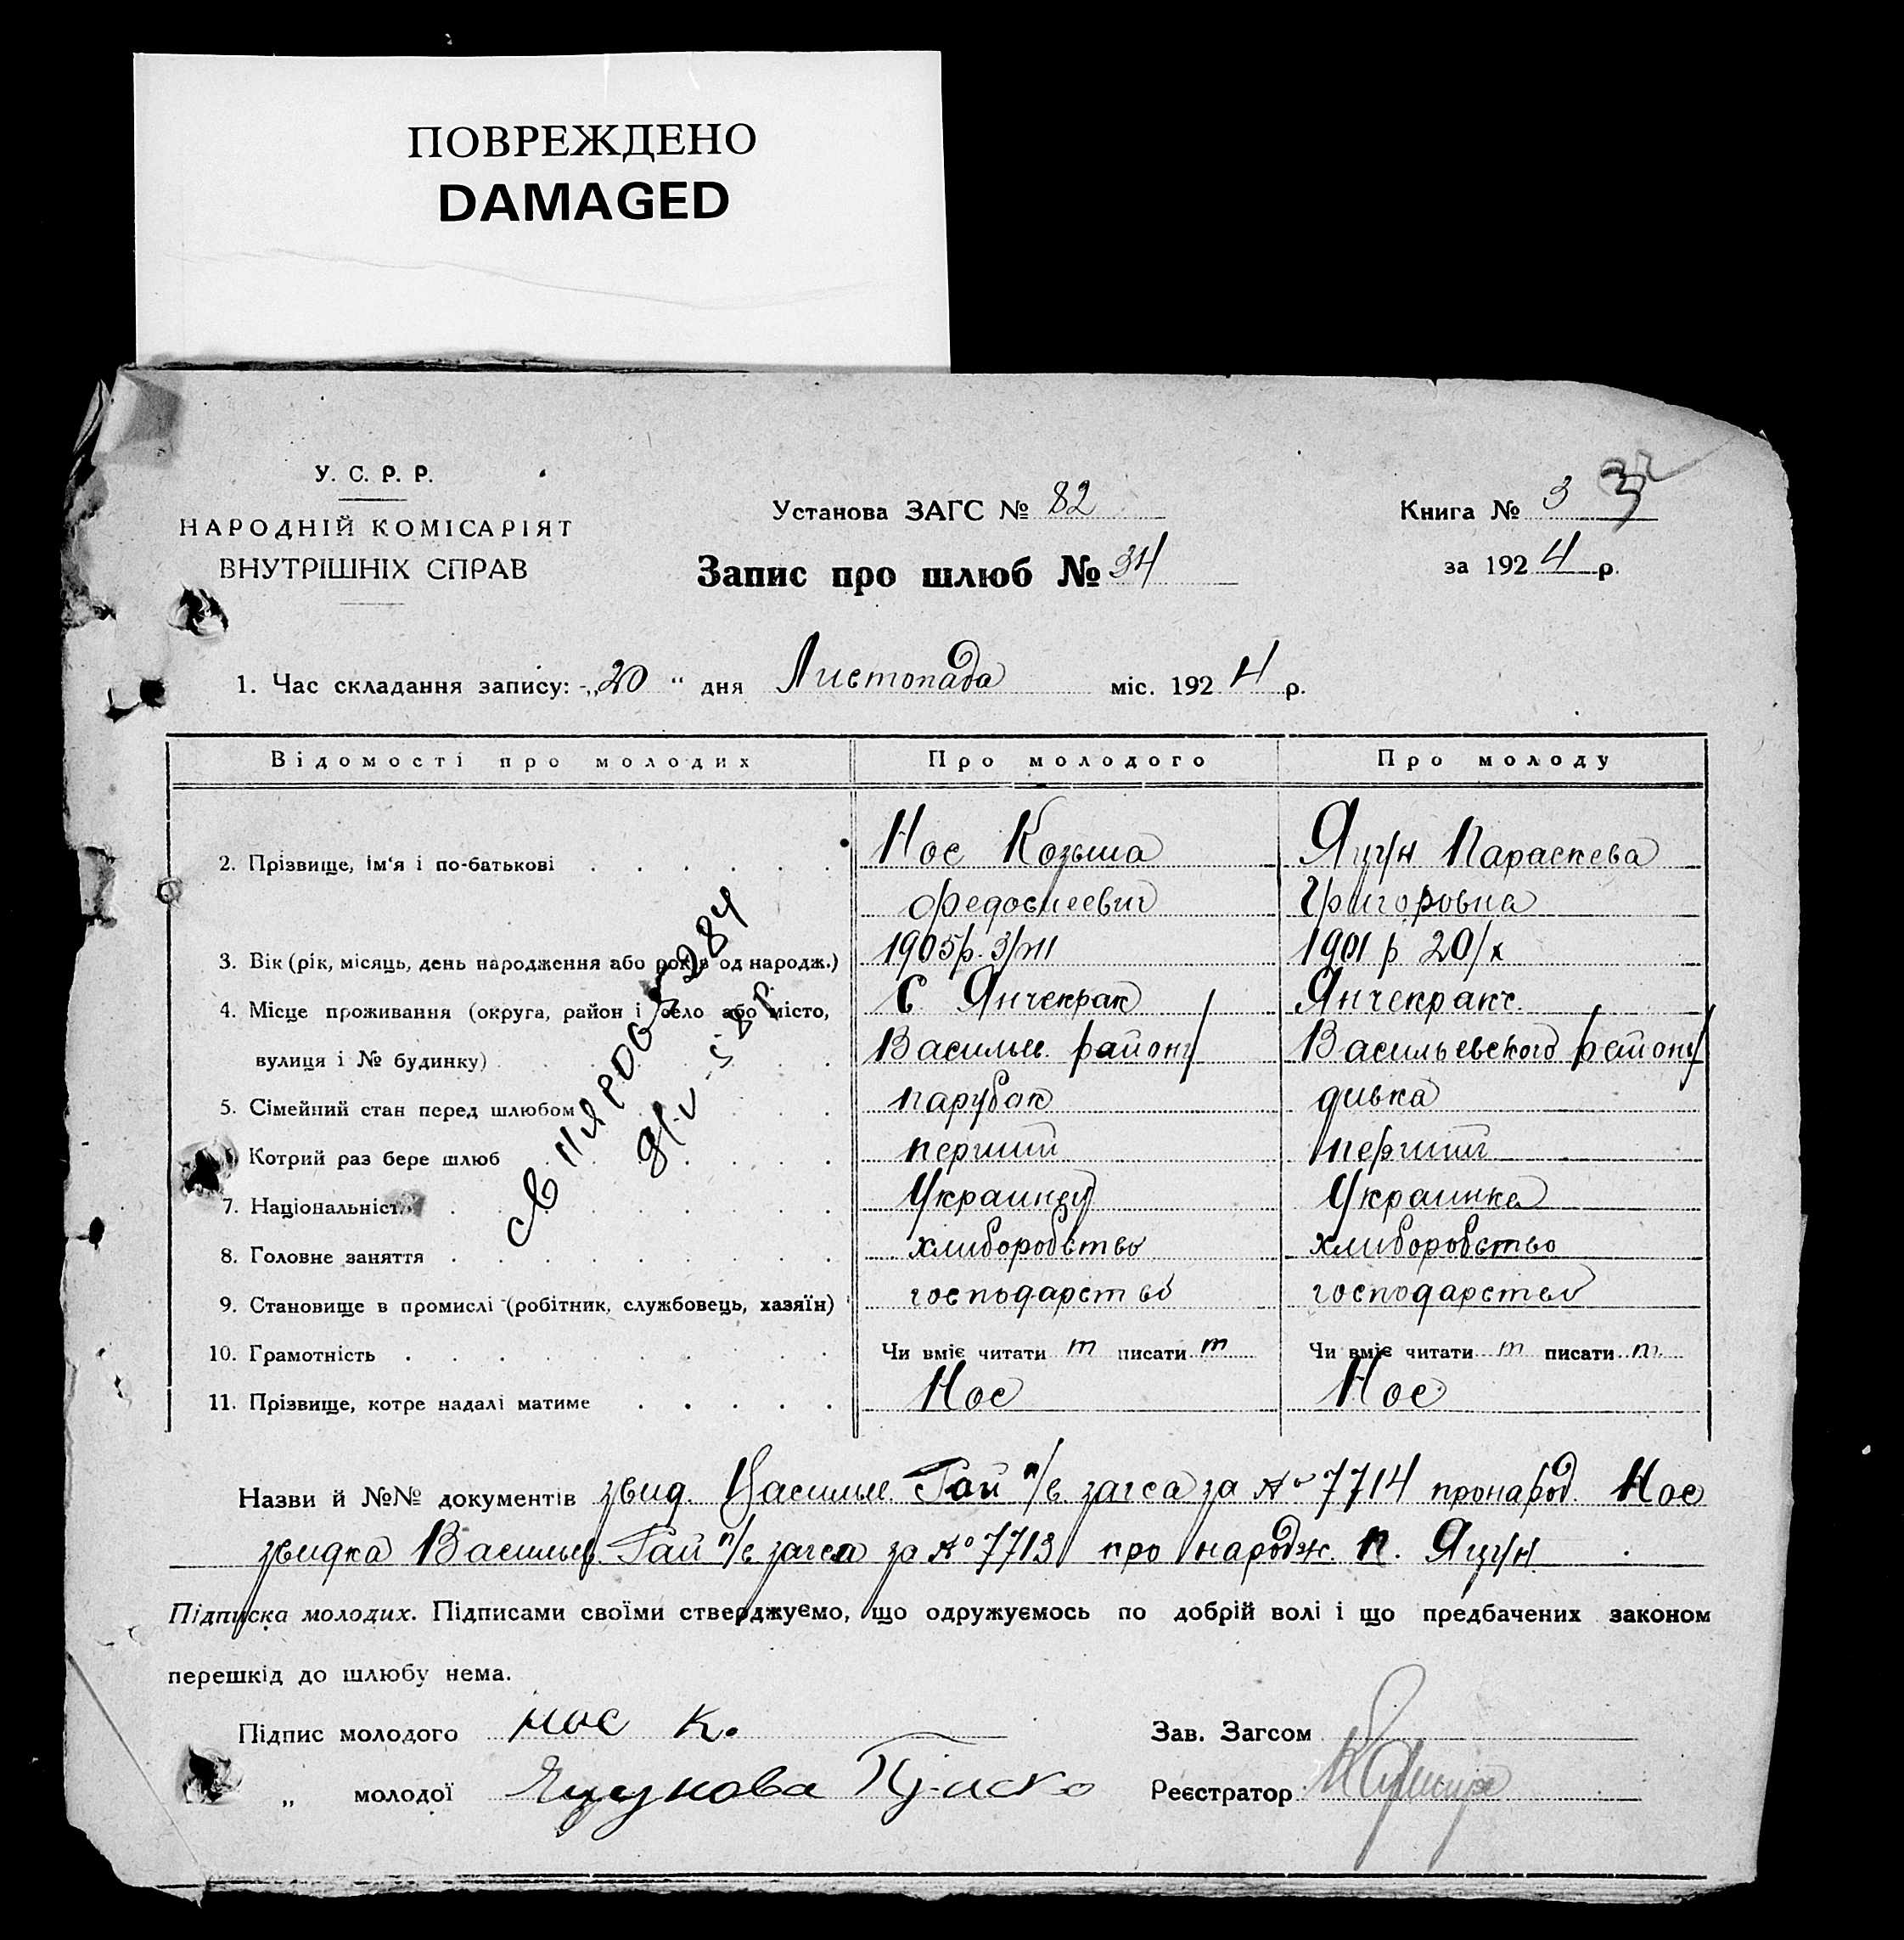 ПОВРЕЖДЕНО
DAMAGED
У. С. Р. Р.
НАРОДНІЙ КОМІСАРІЯТ
ВНУТРІШНІХ СПРАВ
Установа ЗАГС № 82
Книга № 3
Запис про шлюб № 34
за 1924 р.
1. Час складання запису: „20“ дня Листопада міс. 1924 р.
Відомості про молодих Про молодого Про молоду
2. Прізвище, ім'я і по-батькові Нос Козьма Яцун Параскева
Федосиевич Григоровна
3. Вік (рік, місяць, день народження або років од народж.) 1905р. 3/VII 1901 р 20/X
4. Місце проживання (округа, район і село або місто, С. Янчекрак Янчекракъ
вулиця і № будинку) Васильев. району Васильевского району
5. Сімейний стан перед шлюбом парубок дивка
Котрий раз бере шлюб перший перший
7. Національність Украинец Украинка
8. Головне заняття хлиборобство хлиборобство
9. Становище в промислі (робітник, службовець, хазяїн) господарство господарство
10. Грамотність Чи вміє читати т писати т Чи вміє читати т писати т
11. Прізвище, котре надалі матиме Нос Нос
Назви й №№ документів звид. Васильев. Рай п/в загса за № 7714 про народ. Нос
звидка Васильев. Рай п/в загса за № 7713 про народж. П. Яцун
Підписка молодих. Підписами своїми стверджуємо, що одружуємось по добрій волі і що предбачених законом
перешкід до шлюбу нема.
Підпис молодого нос к. Зав. Загсом
„ молодої Яцунова Реєстратор